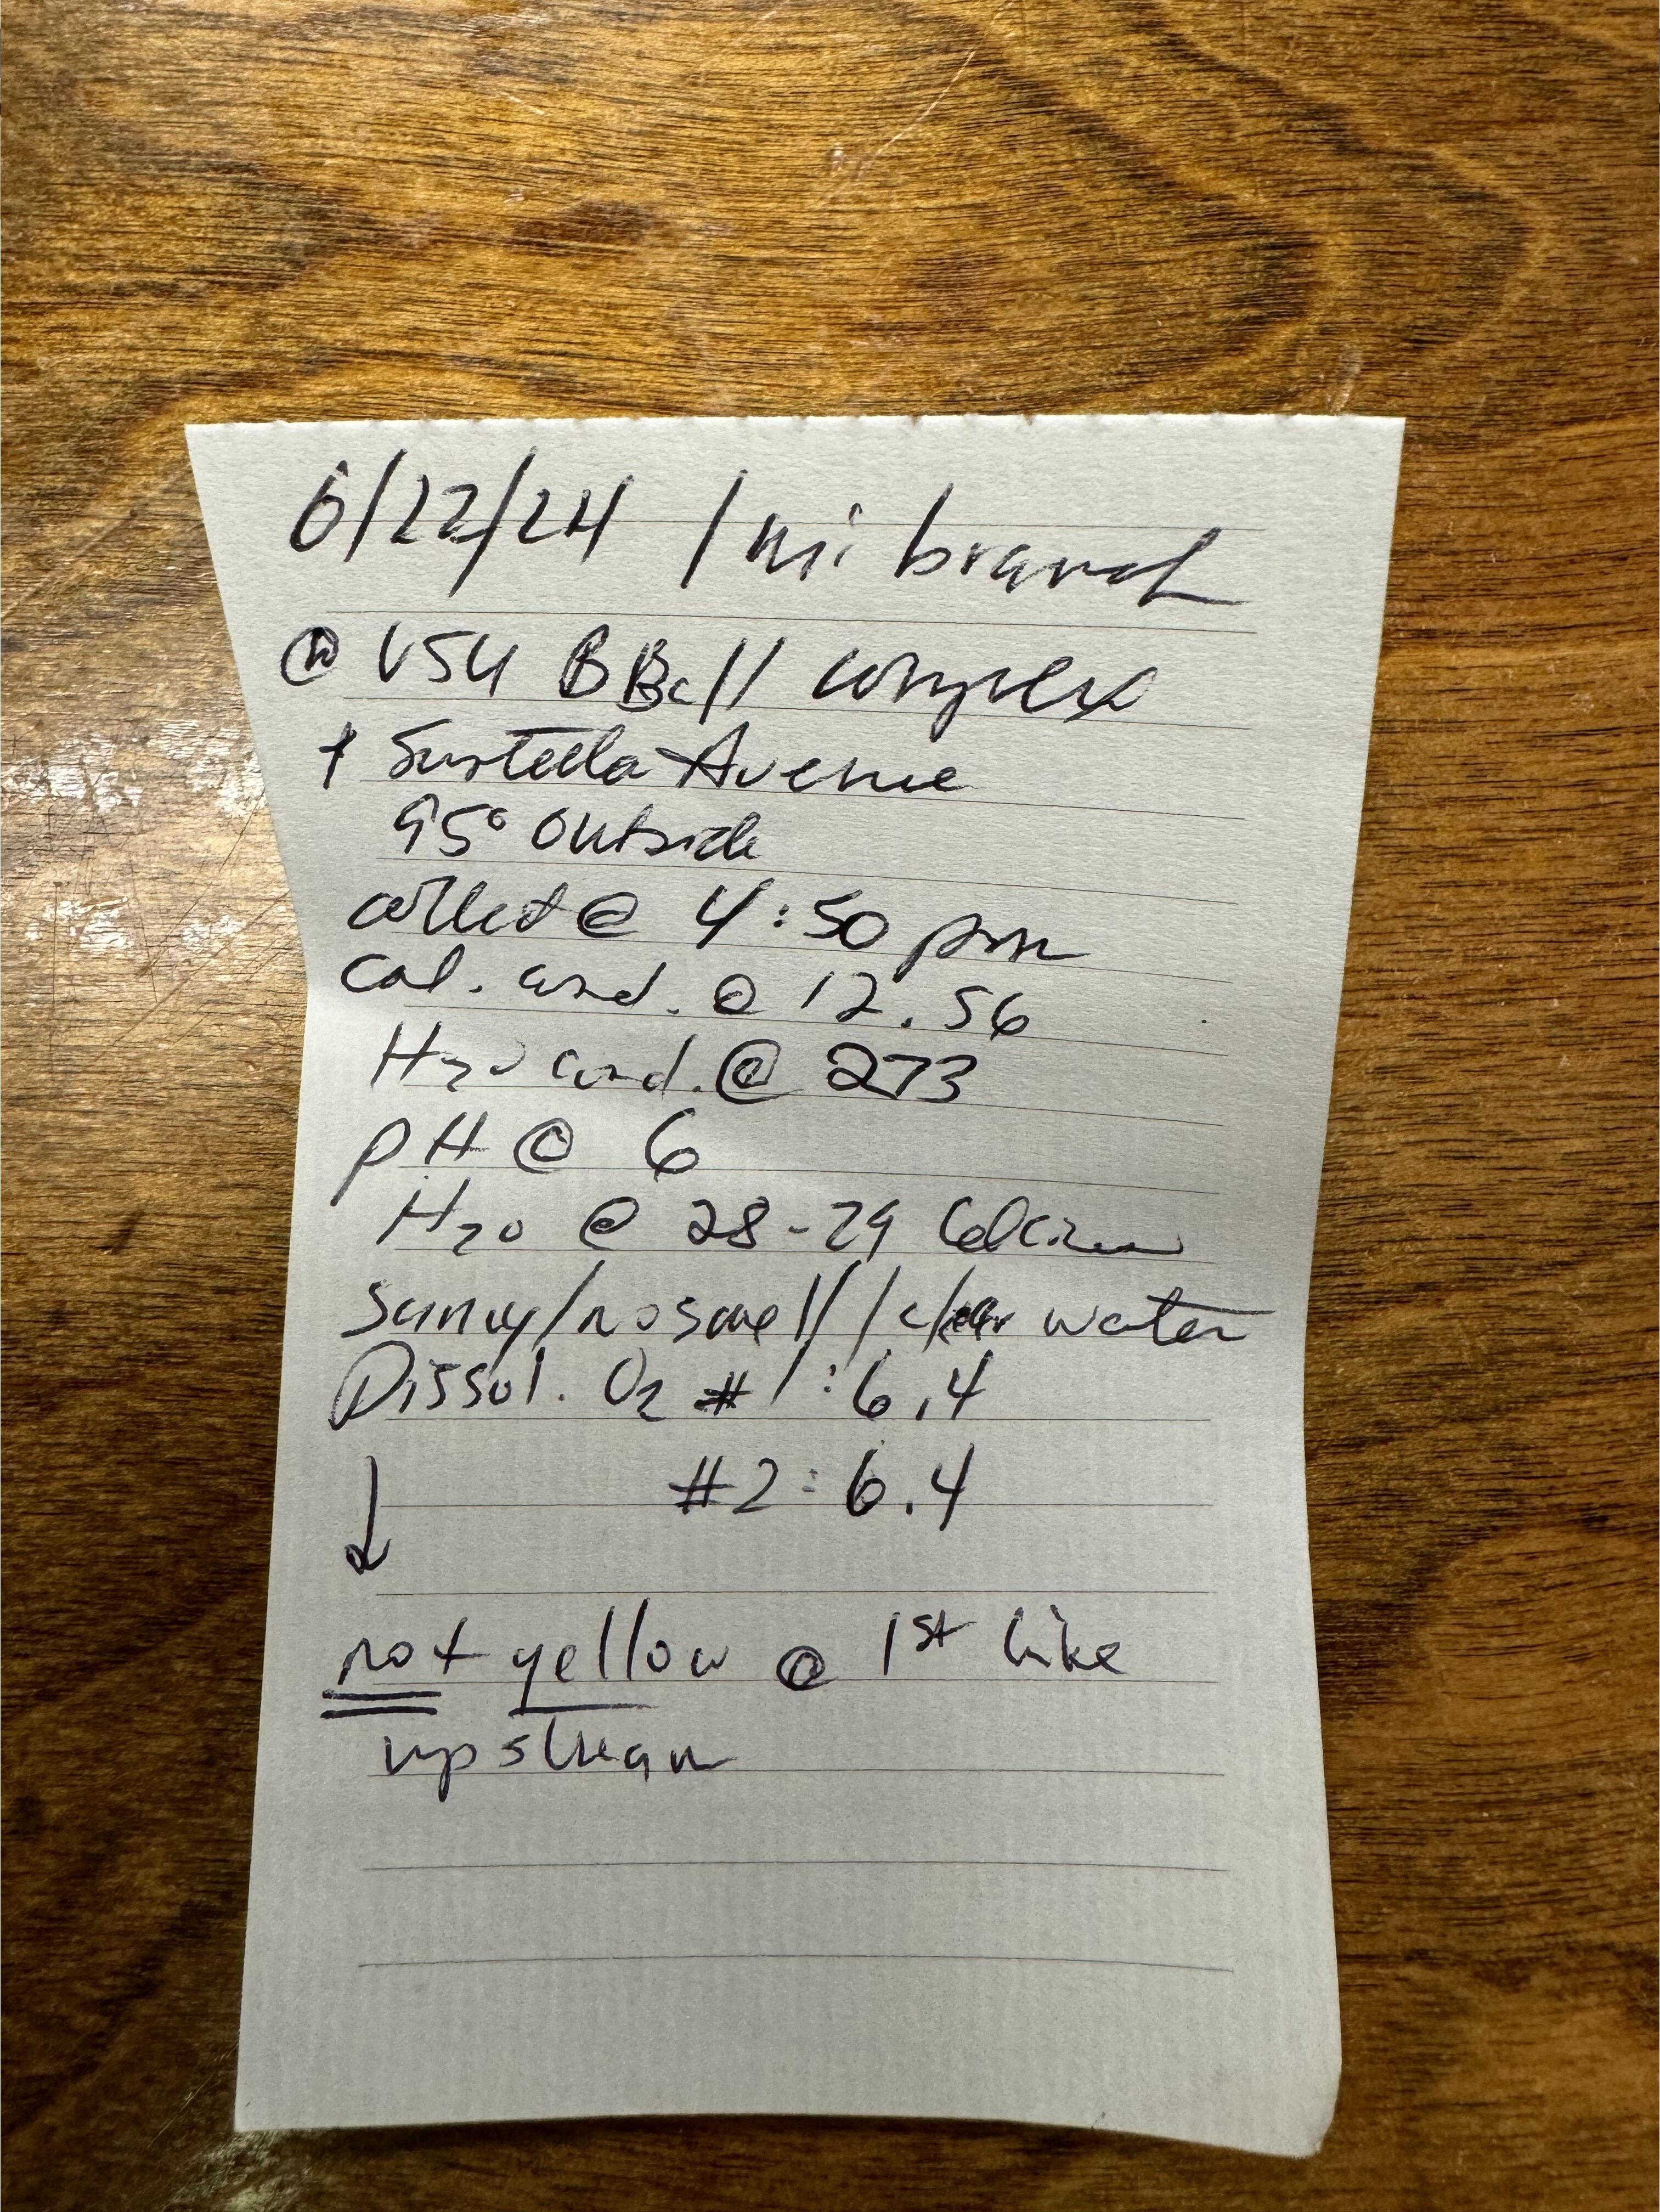 6/22/24 / mi branch
@ VSU BBall complex
+ Sustella Avenue
95° outside
collect @ 4:50 pm
Cal. cond. @ 12.56
H2O cond. @ 273
pH @ 6
H2O @ 28-29 Celcius
Sunny/no smell/clear water
Dissol. O2 #1: 6.4
↓ #2: 6.4
not yellow @ 1st like
upstream